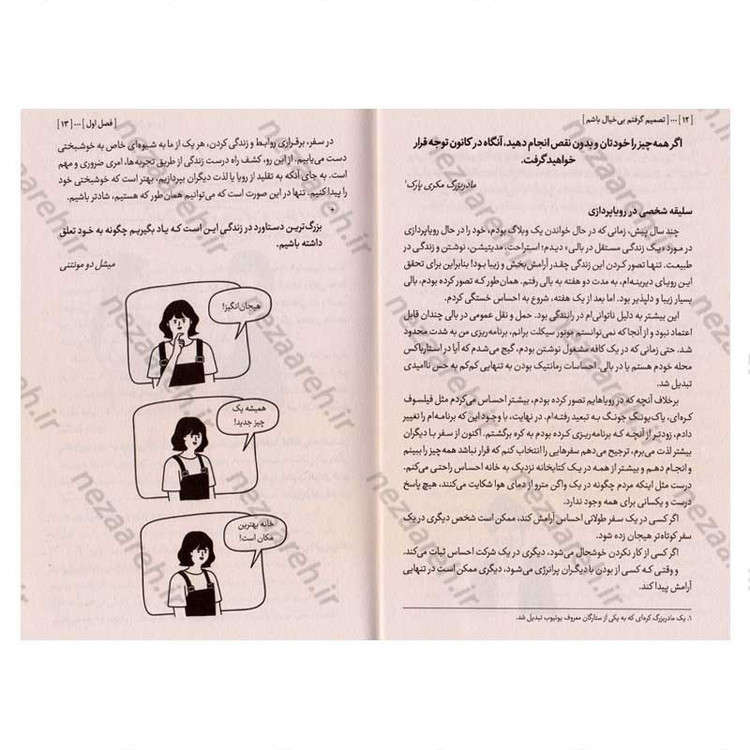 [ ۱۲ ] ... [ تصمیم گرفتم بی‌خیال باشم ]
اگر همه چیز را خودتان و بدون نقص انجام دهید، آنگاه در کانون توجه قرار
خواهید گرفت.
مادربزرگ مکری پارک¹
سلیقه شخصی در رویاپردازی
چند سال پیش، زمانی که در حال خواندن یک وبلاگ بودم، خود را در حال رویاپردازی
در مورد «یک زندگی مستقل در بالی» دیدم؛ استراحت، مدیتیشن، نوشتن و زندگی در
طبیعت. تنها تصور کردن این زندگی چقدر آرامش‌بخش و زیبا بود! بنابراین برای تحقق
این رویای دیرینه‌ام، به مدت دو هفته به بالی رفتم. همان‌طور که تصور کرده بودم، بالی
بسیار زیبا و دلپذیر بود. اما بعد از یک هفته، شروع به احساس خستگی کردم.
این بیشتر به دلیل ناتوانی‌ام در رانندگی بود. حمل و نقل عمومی در بالی چندان قابل
اعتماد نبود و از آنجا که نمی‌توانستم موتور سیکلت برانم، برنامه‌ریزی من به شدت محدود
شد. حتی زمانی که در یک کافه مشغول نوشتن بودم، گیج می‌شدم که آیا در استارباکس
محله خودم هستم یا در بالی. احساسات رمانتیک بودن به تنهایی کم‌کم به حس ناامیدی
تبدیل شد.
برخلاف آنچه که در رویاهایم تصور کرده بودم، بیشتر احساس می‌کردم مثل فیلسوف
کره‌ای، یاک‌یونگ جونگ به تبعید رفته‌ام. در نهایت، با وجود این که برنامه‌ام را تغییر
دادم، زودتر از آنچه که برنامه‌ریزی کرده بودم به کره برگشتم. اکنون از سفر با دیگران
بیشتر لذت می‌برم، ترجیح می‌دهم سفرهایی را انتخاب کنم که قرار نباشد همه چیز را ببینم
و انجام دهم و بیشتر از همه در یک کتابخانه نزدیک به خانه احساس راحتی می‌کنم.
درست مثل اینکه مردم چگونه در یک واگن مترو از دمای هوا شکایت می‌کنند، هیچ پاسخ
درست و یکسانی برای همه وجود ندارد.
اگر کسی در یک سفر طولانی احساس آرامش کند، ممکن است شخص دیگری در یک
سفر کوتاه‌تر هیجان زده شود.
اگر کسی از کار نکردن خوشحال می‌شود، دیگری در یک شرکت احساس ثبات می‌کند.
و وقتی که کسی از بودن با دیگران پرانرژی می‌شود، دیگری ممکن است در تنهایی
آرامش پیدا کند.
۱. یک مادربزرگ کره‌ای که به یکی از ستارگان معروف یوتیوب تبدیل شد.
[ فصل اول ] ... [ ۱۳ ]
در سفر، برقراری روابط و زندگی کردن، هر یک از ما به شیوه‌ای خاص به خوشبختی
دست می‌یابیم. از این رو، کشف راه درست زندگی از طریق تجربه‌ها، امری ضروری و مهم
است. به جای آنکه به تقلید از رویا یا لذت دیگران بپردازیم، بهتر است که خوشبختی خود
را پیدا کنیم. تنها در این صورت است که می‌توانیم همان‌طور که هستیم، شادتر باشیم.
+
بزرگ‌ترین دستاورد در زندگی این است که یاد بگیریم چگونه به خود تعلق
داشته باشیم.
میشل دو مونتنی
هیجان‌انگیز!
همیشه یک
چیز جدید!
خانه بهترین
مکان است!
nezaareh.ir